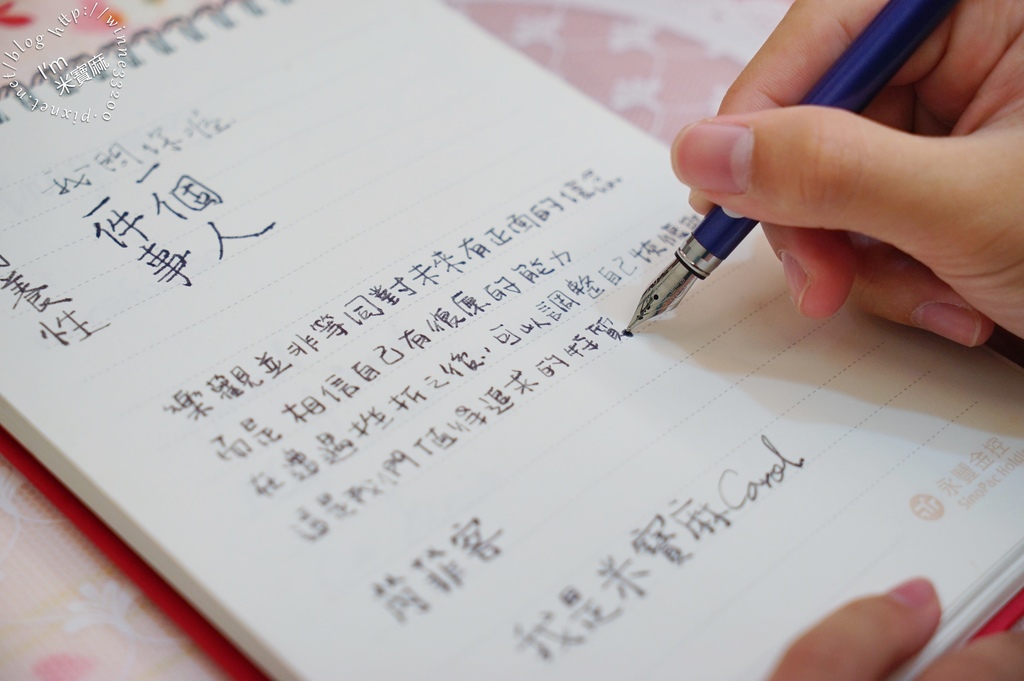 net/blog http://winne33200.pixnet.net
I'm
米寶麻
我
一個人
一件事
養性
樂觀並非等同對未來有正面的信念
而是相信自己有復原的能力
在遭遇挫折之後,可以調整自己恢復
這是我們值得追求的特質
芮菲客
我是米寶麻Carol
永豐金控
SinoPac Holdi